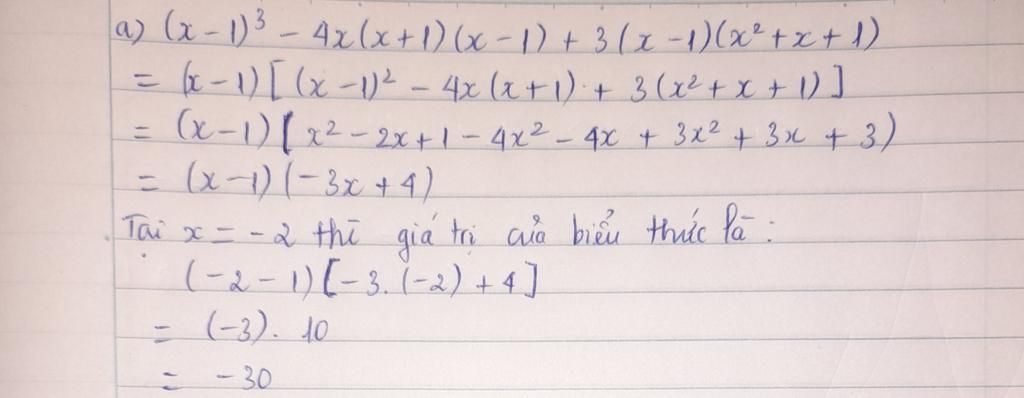 a) (x-1)³ - 4x(x+1)(x-1) + 3(x-1)(x²+x+1)
= (x-1)[(x-1)² - 4x(x+1) + 3(x²+x+1)]
= (x-1)[x²-2x+1-4x²-4x+3x²+3x+3)
= (x-1)(-3x+4)
Tại x=-2 thì giá trị của biểu thức là :
(-2-1)[-3.(-2)+4]
= (-3). 10
= -30